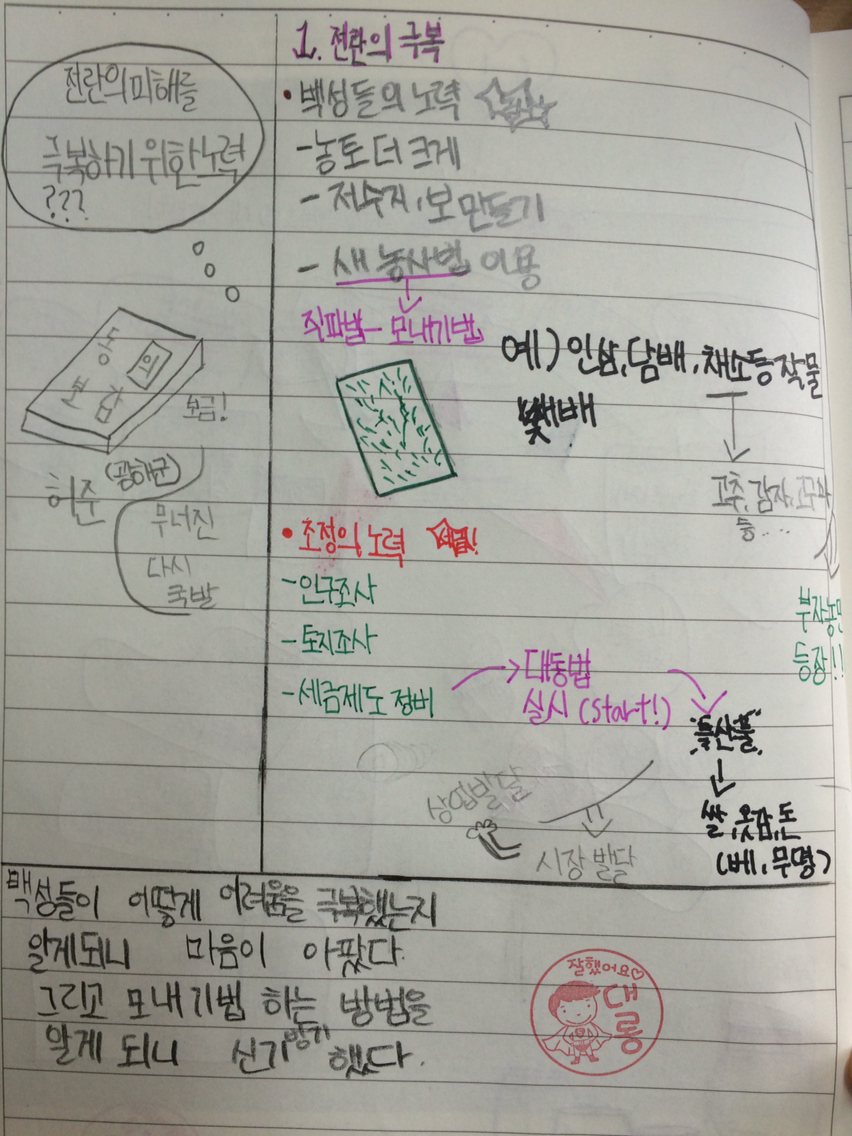 1. 전란의 극복
전란의 피해를
극복하기 위한 노력
???
• 백성들의 노력
- 농토 더 크게
- 저수지, 보 만들기
- 새 농사법 이용
직파법 - 모내기법
예) 인삼, 담배, 채소등 작물
재배
고추, 감자, 고구마
등....
부자농민
등장!!
동의
보감
보급!
허준 (광해군)
무너진
다시
국발
• 조정의 노력
- 인구조사
- 토지조사
- 세금제도 정비
대동법
실시 (start!)
특산물
쌀, 옷감, 돈
(베, 무명)
상업발달
시장 발달
백성들이 어떻게 어려움을 극복했는지
알게되니 마음이 아팠다.
그리고 모내기법 하는 방법을
알게 되니 신기방기 했다.
잘했어요♡
대롱